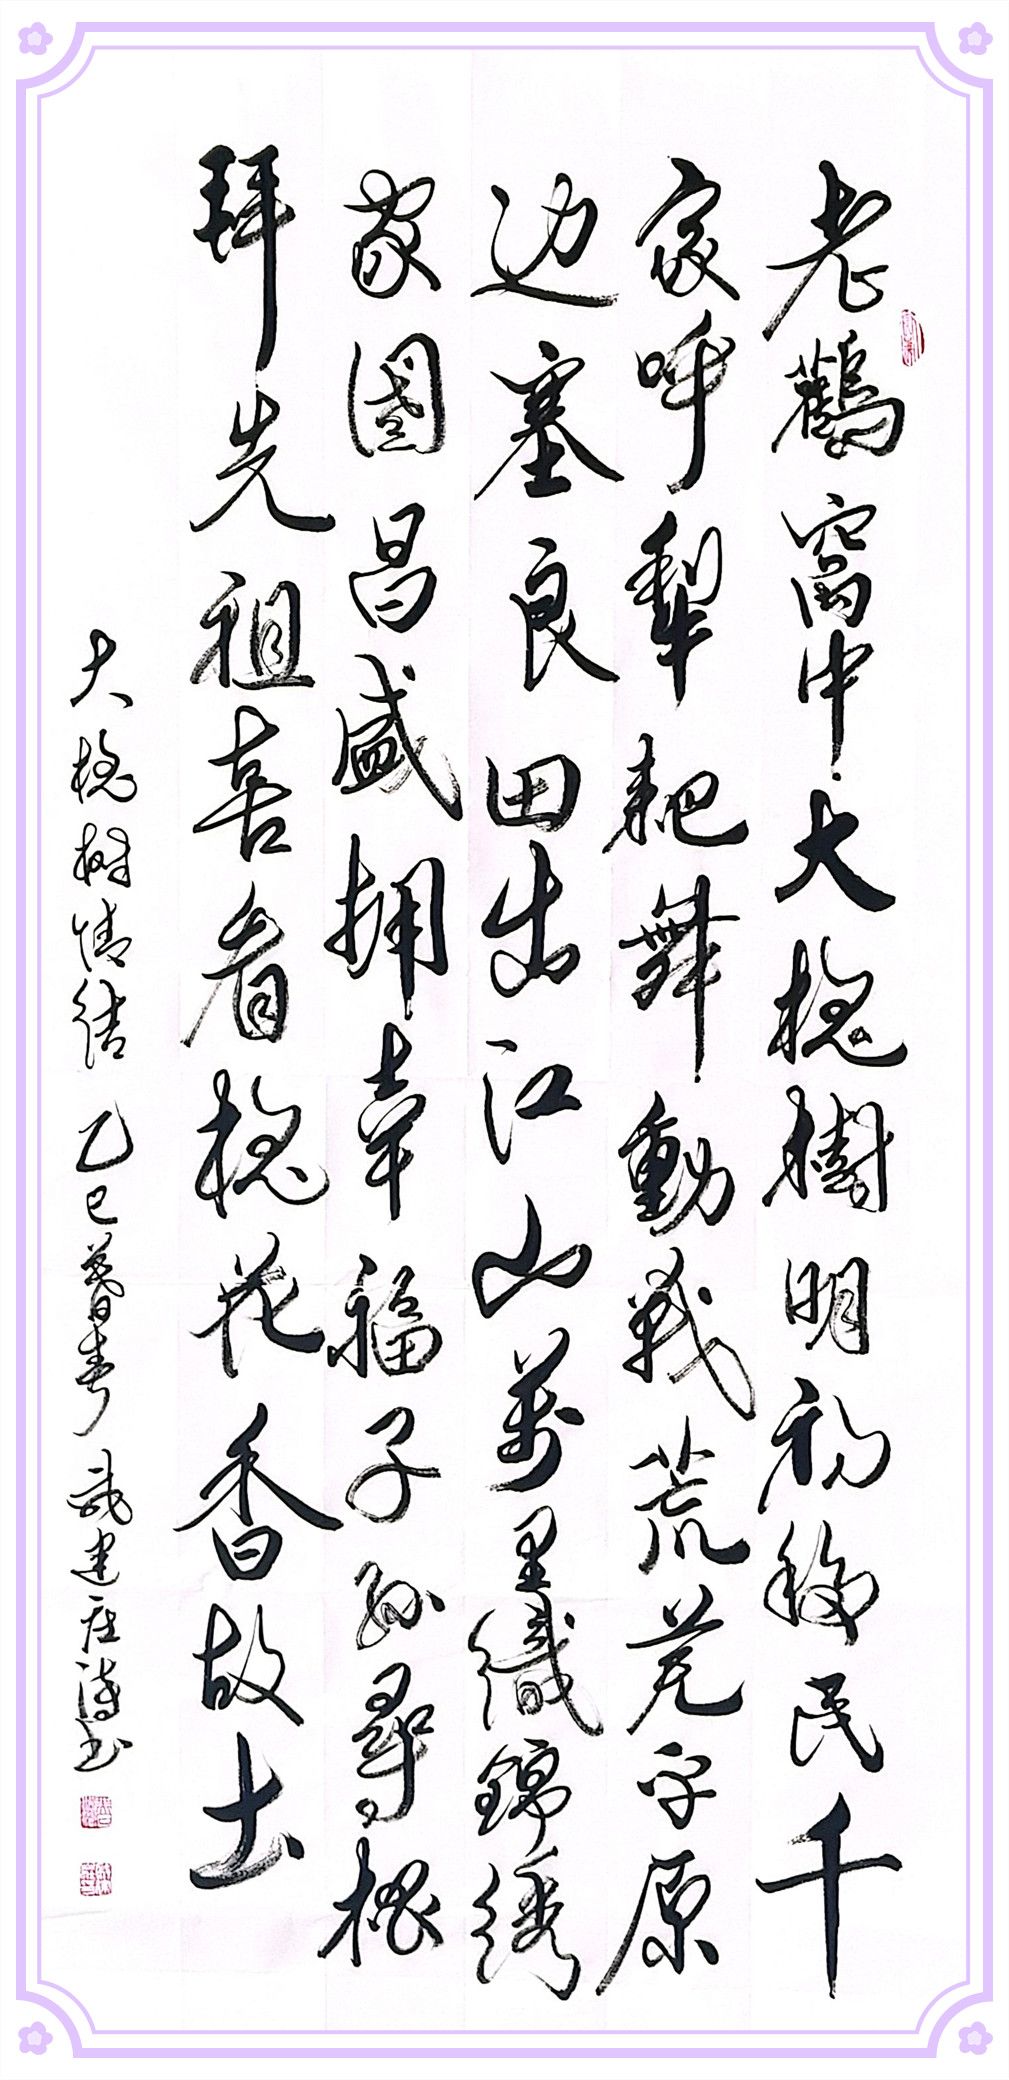 老鸛窩中大槐樹明初移民千
家呼犁耙舞動战荒芜平原
边塞良田出江山萬里織錦綉
家國昌盛拥幸福子孫尋根
拜先祖喜看槐花香故土
大槐树情结 乙巳暮春 建庄诗书